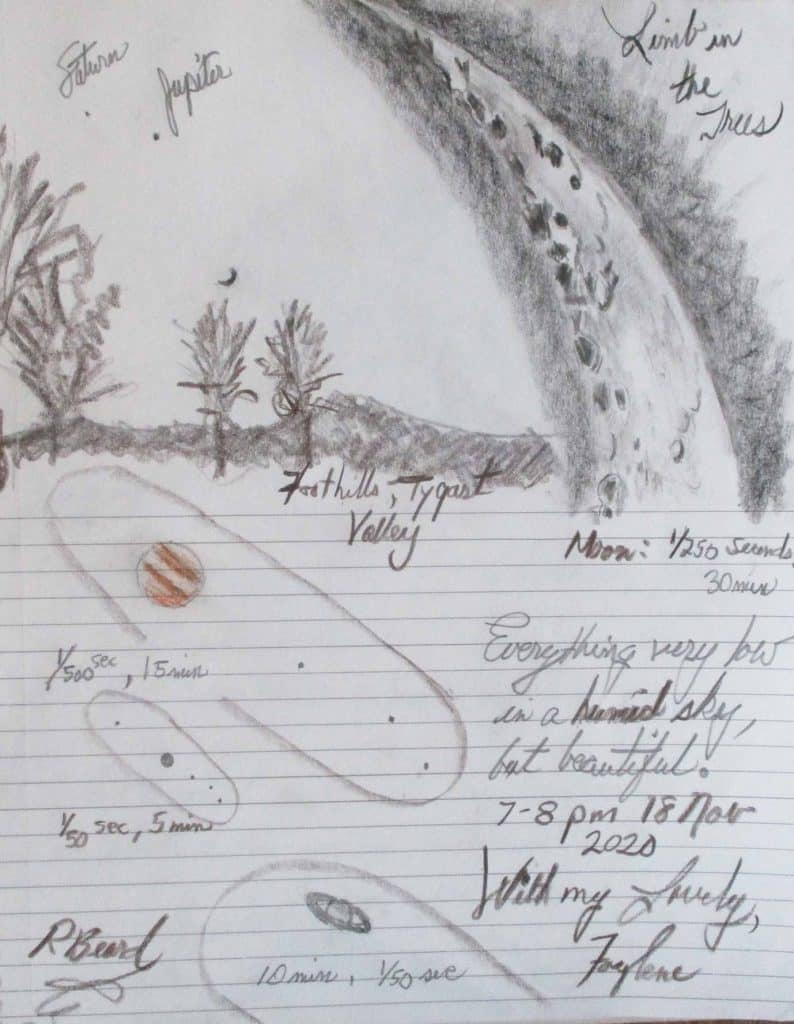 Saturn
Jupiter
Limb in
the
Trees
Foothills, Tygart
Valley
Moon: 1/250 seconds,
30 min
1/500 sec, 15 min
1/50 sec, 5 min
Everything very low
in a humid sky,
but beautiful.
7-8 pm 18 Nov
2020
With my Lovely,
Faylene
R Beard
10 min, 1/50 sec